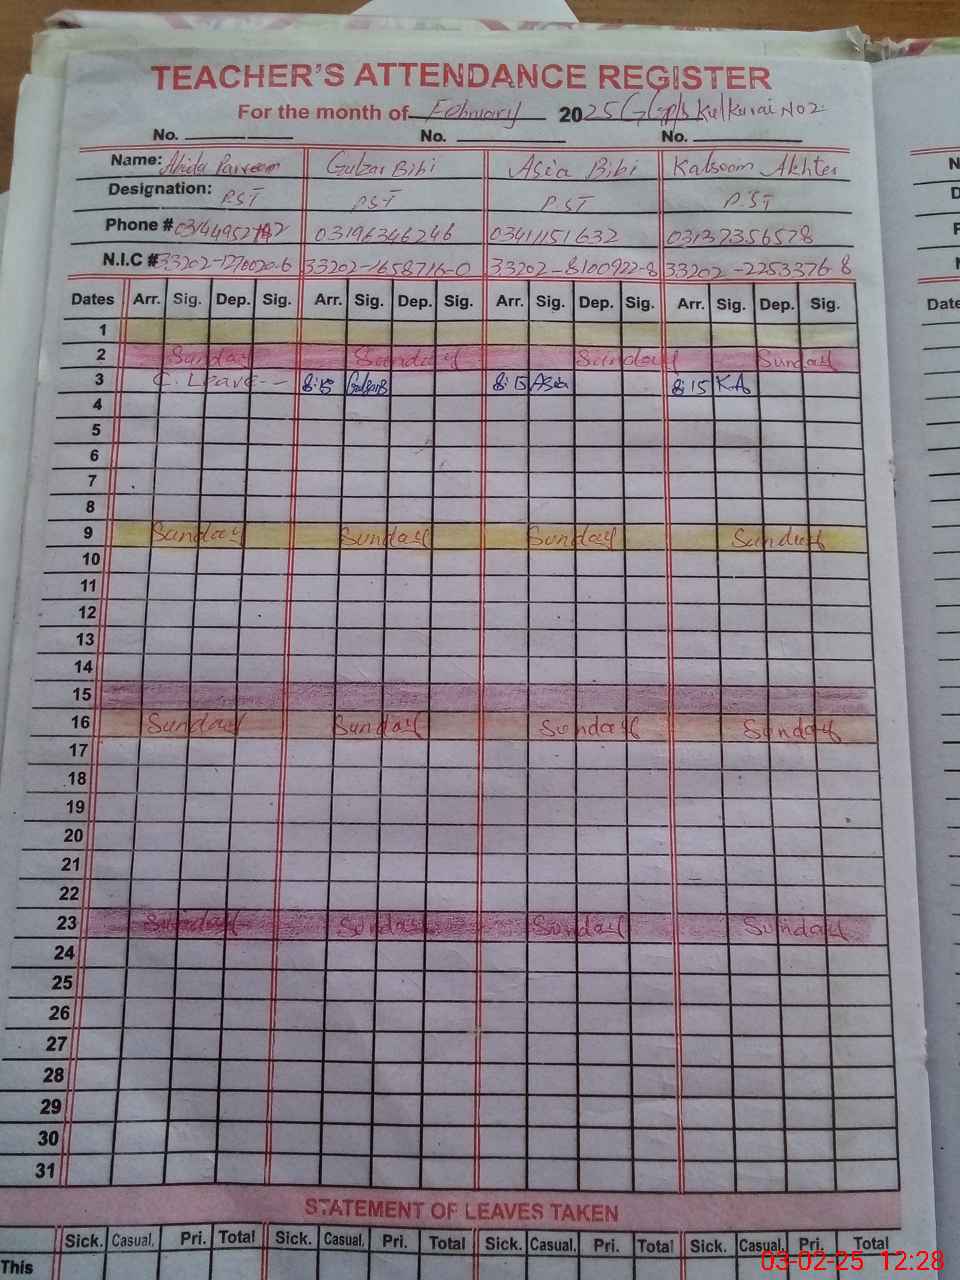 TEACHER'S ATTENDANCE REGISTER
For the month of February 2025 GGP/S Kulkurai No 2
No. No. No.
Name: Abida Parveen Gulzar Bibi Asia Bibi Kalsoom Akhter
Designation: PST PST P.ST P.ST
Phone # 03196346246 03411151632 03137356578
N.I.C # 33202-1270020-6 33202-1658716-0 33202-8100922-8 33202-2253376-8
Dates Arr. Sig. Dep. Sig. Arr. Sig. Dep. Sig. Arr. Sig. Dep. Sig. Arr. Sig. Dep. Sig.
1
2 Sunday Sunday Sunday Sunday
3 C. Leave-- 8:15 GulzarB 8:15 Asia 8:15 KA
4
5
6
7
8
9 Sunday Sunday Sunday Sunday
10
11
12
13
14
15
16 Sunday Sunday Sunday Sunday
17
18
19
20
21
22
23 Sunday Sunday Sunday Sunday
24
25
26
27
28
29
30
31
STATEMENT OF LEAVES TAKEN
Sick. Casual. Pri. Total Sick. Casual. Pri. Total Sick. Casual. Pri. Total Sick. Casual. Pri. Total
This
03-02-25 12:28
Date